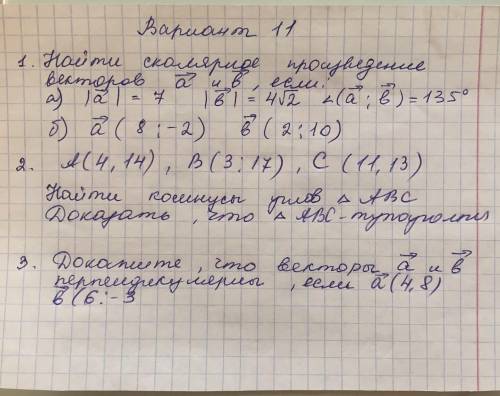 Вариант 11
1. Найти скалярное произведение
векторов a⃗ и b⃗, если:
а) |a⃗| = 7 |b⃗| = 4√2 ∠(a⃗; b⃗) = 135°
б) a⃗ (8; -2) b⃗ (2; 10)
2. А(4, 14), В(3; 17), С (11, 13)
Найти косинусы углов △ АВС
Доказать, что △ АВС - тупоугольн
3. Докажите, что векторы a⃗ и b⃗
перпендикулярны, если a⃗(4, 8)
b⃗(6; -3